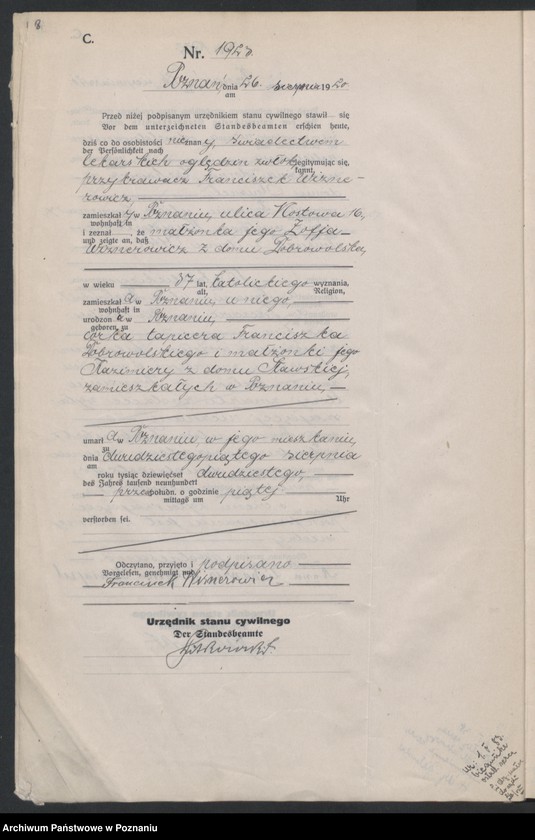 8
C.
Nr. 192
Poznań, dnia 26. sierpnia 1920
am
Przed niżej podpisanym urzędnikiem stanu cywilnego stawił się
Vor dem unterzeichneten Standesbeamten erschien heute,
dziś co do osobistości nieznany, świadectwem
der Persönlichkeit nach
lekarskich oględzin zwłok legitymując się,
kannt,
przykrawacz Franciszek
zamieszkały w Poznaniu, ulica Kostowa 16,
wohnhaft in
i zeznał, że małżonka jego Zofja
und zeigte an, daß
z domu Dobrowolska,
w wieku 37 lat, katolickiego wyznania,
alt, Religion,
zamieszkała w Poznaniu, u niego,
wohnhaft in
urodzona w Poznaniu,
geboren zu
córka tapicera Franciszka
Dobrowolskiego i małżonki jego
Kazimiery z domu Sławskiej,
zamieszkałych w Poznaniu,
umarła w Poznaniu, w jego mieszkaniu,
zu
dnia dwudziestegopiątego sierpnia
am
roku tysiąc dziewięćset dwudziestego,
des Jahres tausend neunhundert
przedpołudn. o godzinie piątej
mittags um Uhr
verstorben sei.
Odczytano, przyjęto i podpisano
Vorgelesen, genehmigt und
Franciszek
Urzędnik stanu cywilnego
Der Standesbeamte
Archiwum Państwowe w Poznaniu